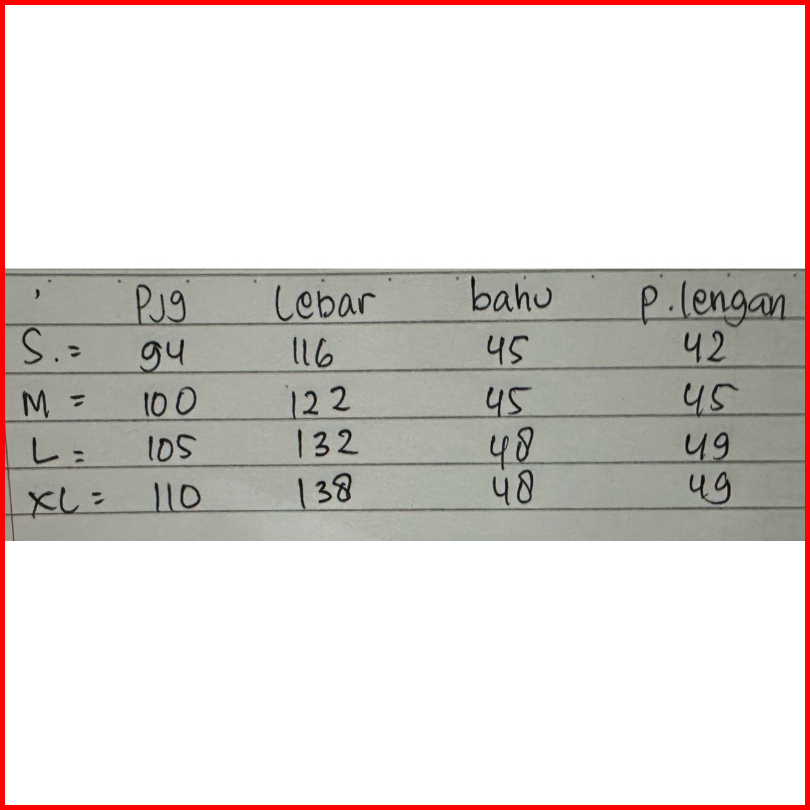 Pjg Lebar bahu P.lengan
S.= 94 116 45 42
M = 100 122 45 45
L = 105 132 48 49
XL = 110 138 48 49